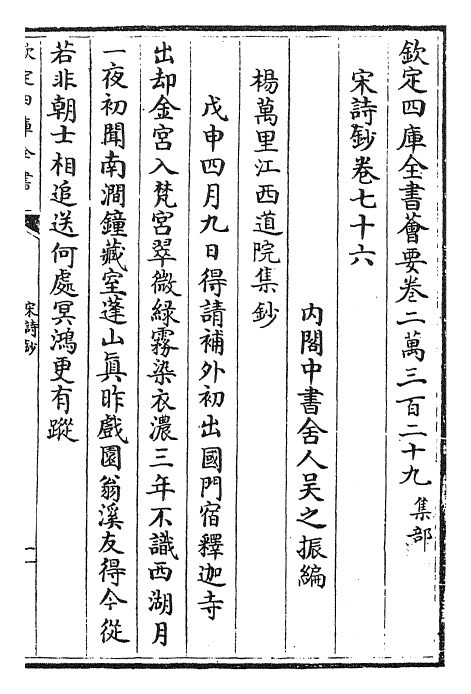 欽定四庫全書薈要卷二萬三百二十九 集部
宋詩鈔卷七十六
內閣中書舍人吳之振編
楊萬里江西道院集鈔
戊申四月九日得請補外初出國門宿釋迦寺
出却金宮入梵宮翠微綠霧染衣濃三年不識西湖月
一夜初聞南澗鐘藏室蓬山眞昨戲園翁溪友得今從
若非朝士相追送何處冥鴻更有蹤
欽定四庫全書
宋詩鈔
一